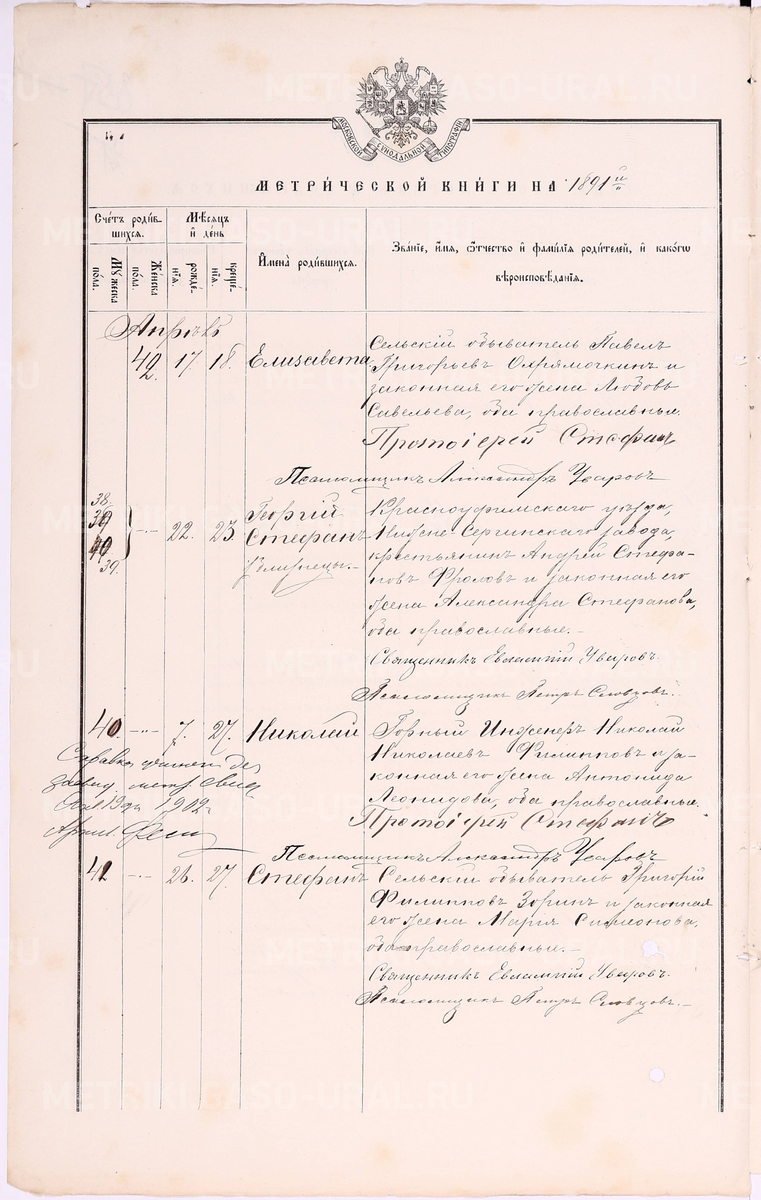 МОСКОВСКОЙ СѴНОДАЛЬНОЙ ТИПОГРАФІИ
МЕТРИ́ЧЕСКОЙ КНИ́ГИ НА 1891 й
Сче́тъ роди́в-
шихся.
Мѣсяцъ
и҆ де́нь
И҆мена̀ роди́вшихся.
Зва́нїе, и҆́мя, ѻ҆́тчество и҆ фамѝлїя роди́телей, и҆ како́гѡ
вѣроисповѣ́данїя.
Му́жеска
по́ла.
Же́нска
по́ла.
рожде́-
нїя.
креще́-
нїя.
Апрѣль
42. 17 18. Елизавета
Сельскій обыватель Павелъ
Григорьевъ Опрямочкинъ и
законная его жена Любовь
Савельева, оба православные.
Протоіерей Стефанъ
Псаломщикъ Александръ Уваровъ
38. 39 40 39. 22. 23. Георгій
Стефанъ
близнецы.
Красноуфимскаго уѣзда,
Нижне-Сергинскаго завода,
крестьянинъ Андрей Стефа-
новъ Фроловъ и законная его
жена Александра Стефанова,
оба православные.
Священникъ Евлампій Уваровъ.
Псаломщикъ Петръ Словцовъ.
40. 7. 27. Николай
Горный Инженеръ Николай
Николаевъ Филипповъ и за-
конная его жена Антонида
Леонидова, оба православные.
Протоіерей Стефанъ
Псаломщикъ Александръ Уваровъ
Справка
метр. свид.
1902
41 26. 27. Стефанъ
Сельскій обыватель Григорій
Филипповъ Зоринъ и законная
его жена Марія Симеонова,
оба православные.
Священникъ Евлампій Уваровъ.
Псаломщикъ Петръ Словцовъ.